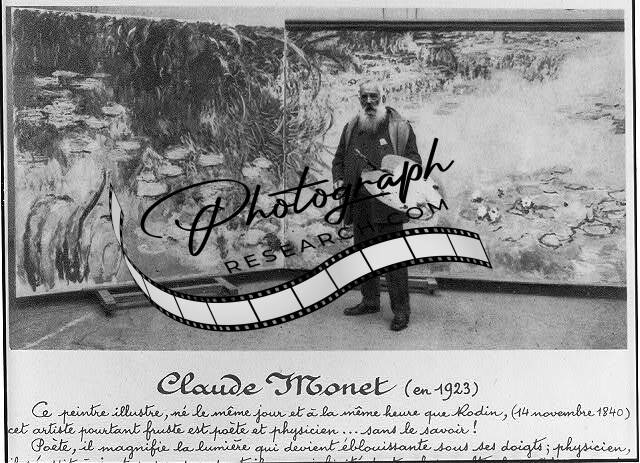 Photograph
RESEARCH.COM
Claude Monet (en 1923)
Ce peintre illustre, né le même jour et à la même heure que Rodin, (14 novembre 1840)
cet artiste pourtant fruste est poète et physicien ... sans le savoir !
Poète, il magnifie la lumière qui devient éblouissante sous ses doigts ; physicien,